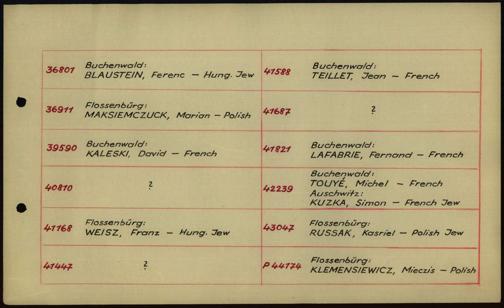 36801 Buchenwald:
BLAUSTEIN, Ferenc – Hung. Jew
36911 Flossenbürg:
MAKSIEMCZUCK, Marian – Polish
39590 Buchenwald:
KALESKI, David – French
40810 ?
41168 Flossenbürg:
WEISZ, Franz – Hung. Jew
41447 ?
41588 Buchenwald:
TEILLET, Jean – French
41687 ?
41821 Buchenwald:
LAFABRIE, Fernand – French
42239 Buchenwald:
TOUYÉ, Michel – French
Auschwitz:
KUZKA, Simon – French Jew
43047 Flossenbürg:
RUSSAK, Kasriel – Polish Jew
P 44174 Flossenbürg:
KLEMENSIEWICZ, Mieczis – Polish